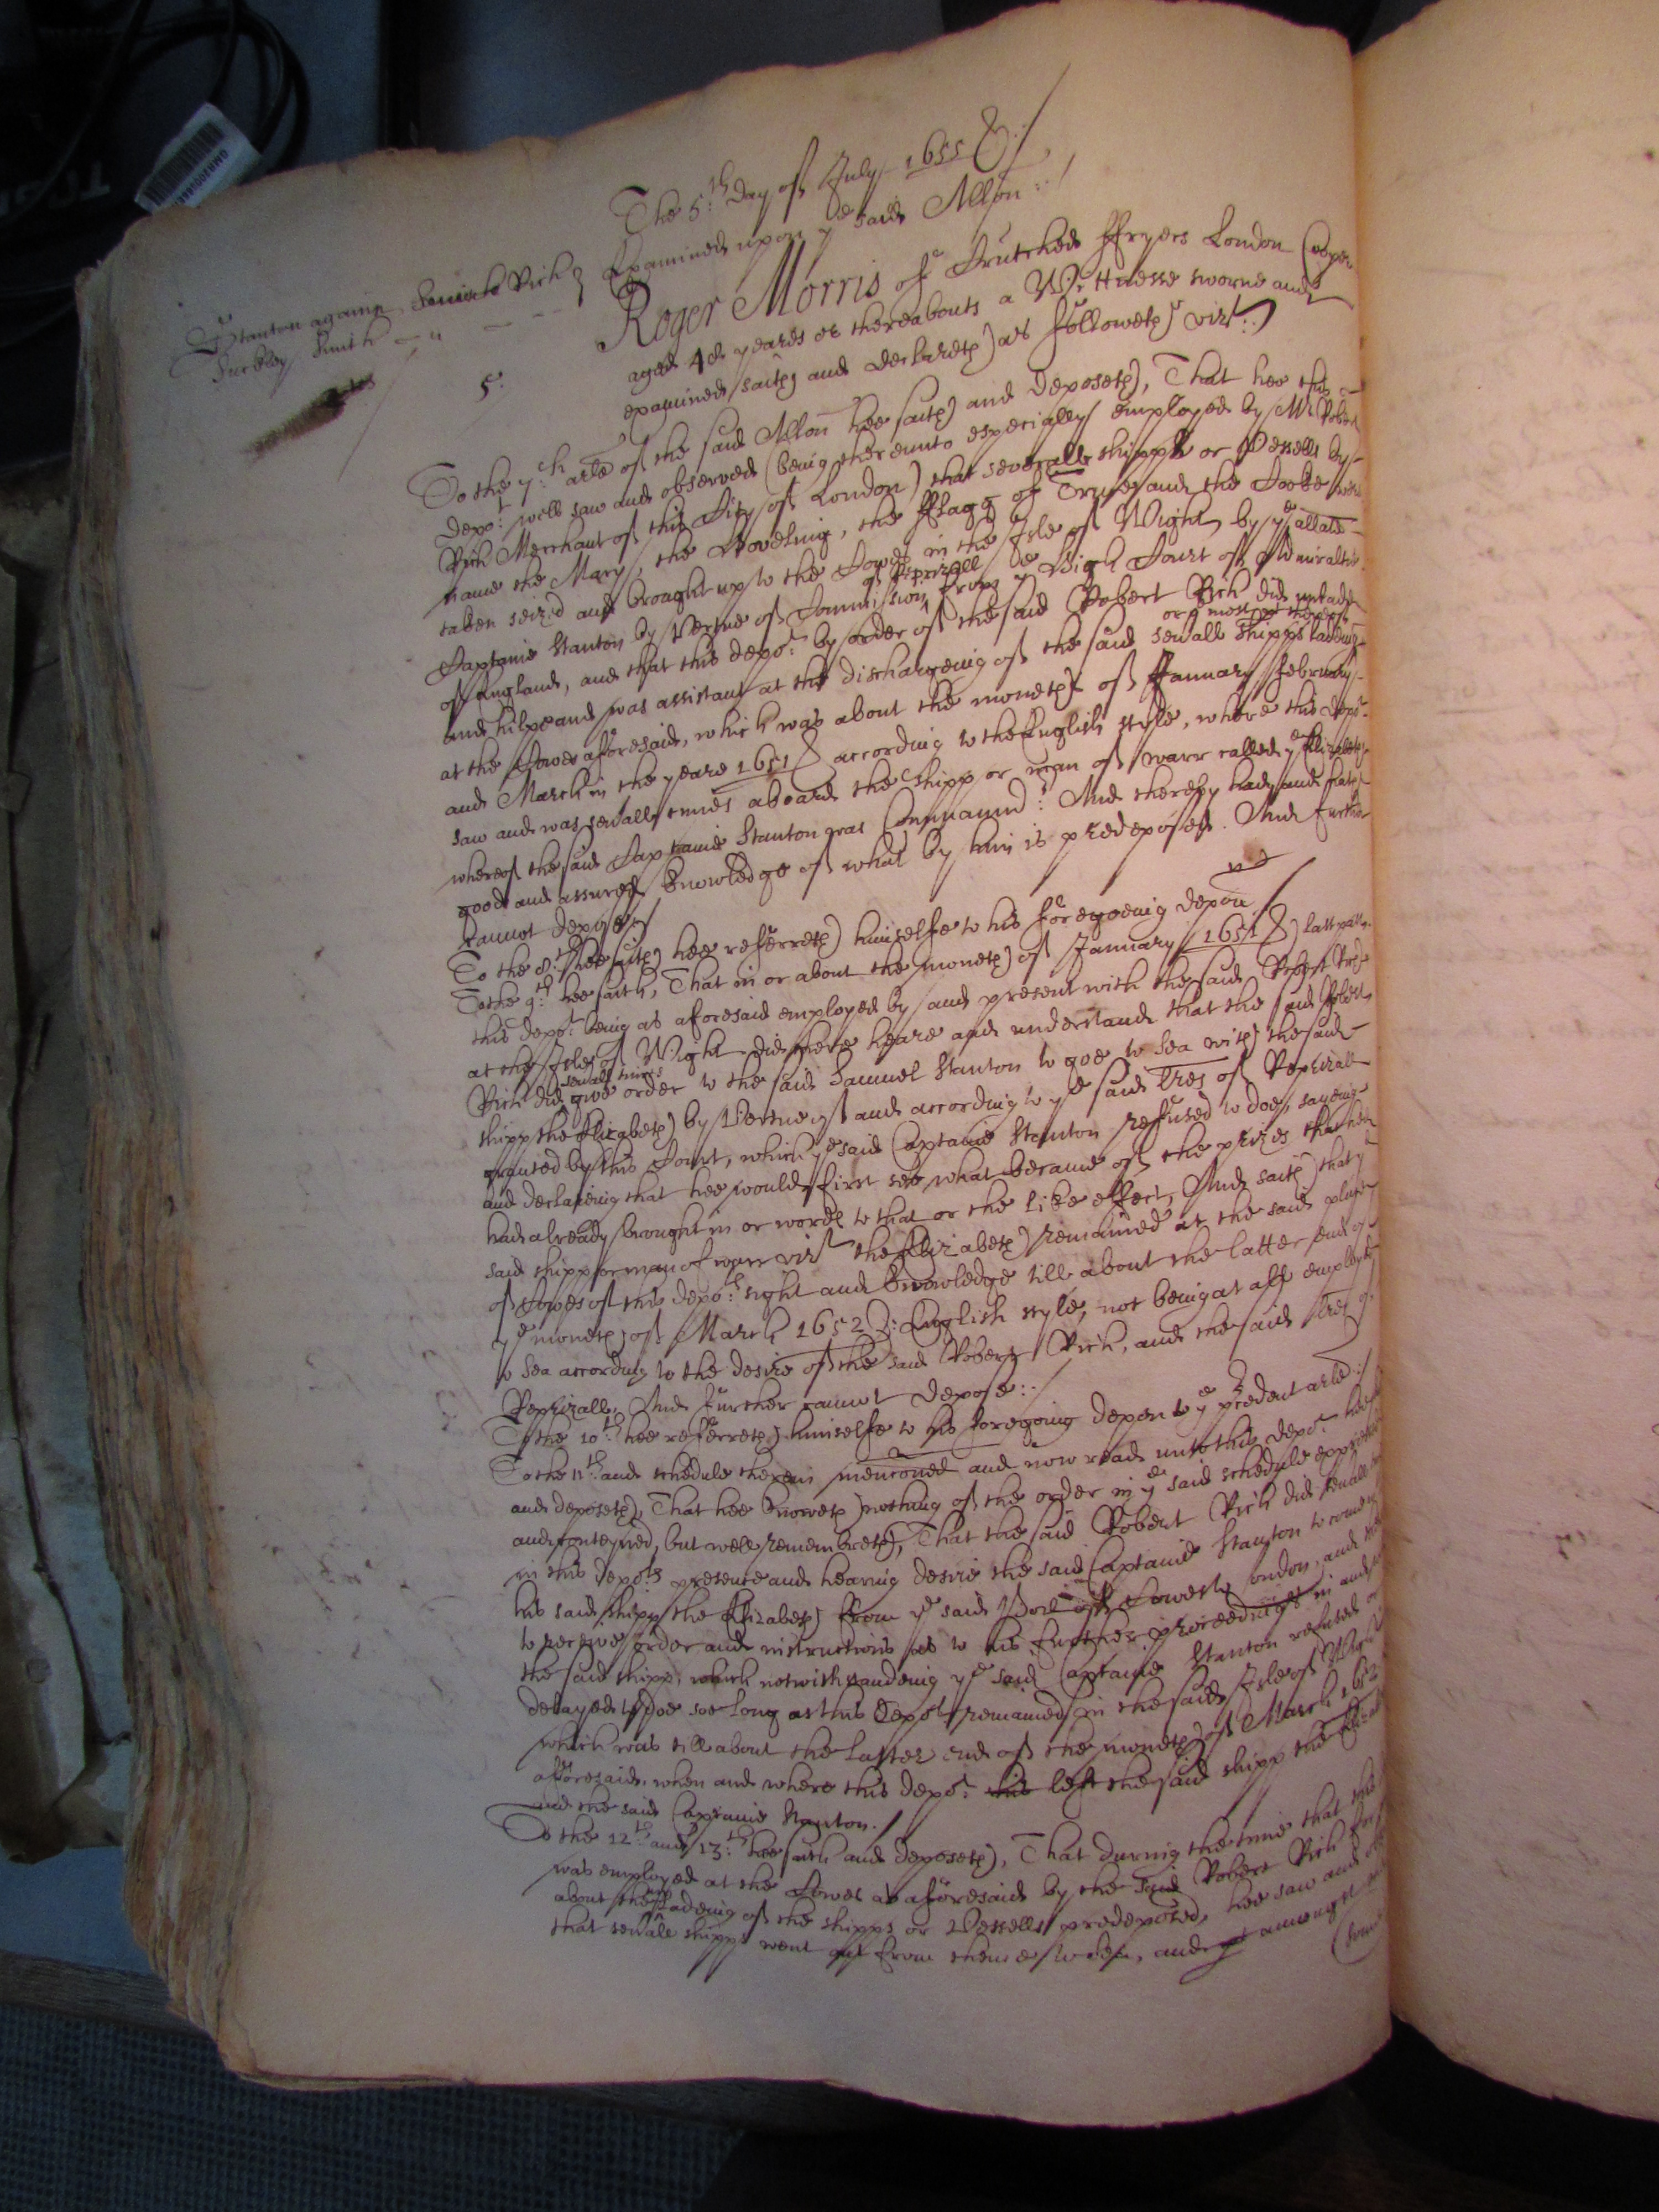 The 5:th day of July 1655
Examined upon ye said Allon:
Stanton against Rich
Suckley Smith
5:
Roger Morris of Crutched ffryers London Cooper
aged 48 yeares or thereabouts a Wittnesse sworne and
examined saith and declareth as followeth vizt:
To the 7:th arle of the said Allon hee saith and deposeth, That hee this
depot well saw and observed (being thereunto especially employed by Mr Robert
Rich Merchant of this City of London) that severall shipps or Vessells by
name the Mary, the the fflagg of Truce and the were
taken seized and brought up to the Cowes in the Isle of Wight by ye allate
Captaine Stanton by Vertue of Commission of Reprizall from ye High Court of Admiraltie
of England, and that this depot by order of the said Robert Rich did unlade
and helpe and was assistant at the dischargeing of the said sevall shipps or most of them ladeing
at the Cowes aforesaid, which was about the moneths of January ffebruary
and March in the yeare 1651 according to the English style, where this depot
saw and was sevall times aboard the shipp or man of warr called ye Elizabeth
whereof the said Captaine Stanton was Command:r And thereby had and hath
good and assured knowledge of what by him is predeposed. And further
cannot depose
To the 8:th hee saith hee referreth himselfe to his foregoeing depon
To the 9:th hee saith, That in or about the moneth of January (1651) last past
this depot being as aforesaid employed by and present with the said Robert Rich
at the Isle of Wight did there heare and understand that the said Robert
Rich did sevall times give order to the said Samuel Stanton to goe to Sea with the said
shipp the Elizabeth by Vertue of and according to ye said lres of Reprizall
granted by this Court, which ye said Captaine Stanton reffused to doe, sayeing
and declareing that hee would first see what became of the prizes that hee
had already brought in or words to that or the like effect, And saith that ye
said shipp or man of warr vizt the Elizabeth remained at the said place
of Cowes of this depots sight and knowledge till about the latter end of
ye moneth of March 1652: English style, not being at all employed
to Sea according to the desire of the said Robert Rich, and the said lres of
Reprizall, And further cannot depose:
To the 10:th hee referreth himselfe to his foregoing depon to ye predent arle:
To the 11:th and schedule therein mencioned and now read unto this depot hee
and deposeth, That hee knoweth nothing of the order in ye said schedule expressed
and conteyned, but well remembreth, That the said Robert Rich did sevall
in this depots presence and hearing desire the said Captaine Stanton to come
his said shipp the Elizabeth from ye said Port of Cowes to London, and there
to receive order and instructions as to his further proceedings in and
the said shipp, which notwithstandeing ye said Captaine Stanton refused or
delayed to doe soe long as this depot remained in the said Isle of Wight
which was till about the latter end of the moneth of March 1652
afforesaid, when and where this depot his left the said shipp the Elizab
and the said Captaine Stanton.
To the 12:th and 13:th hee saith and deposeth, That during the time that
was employed at the Cowes as aforesaid by the said Robert Rich
about the unladeing of the shipps or Vessells predeposed, hee saw and
that sevall shipps went out from thence and amongst